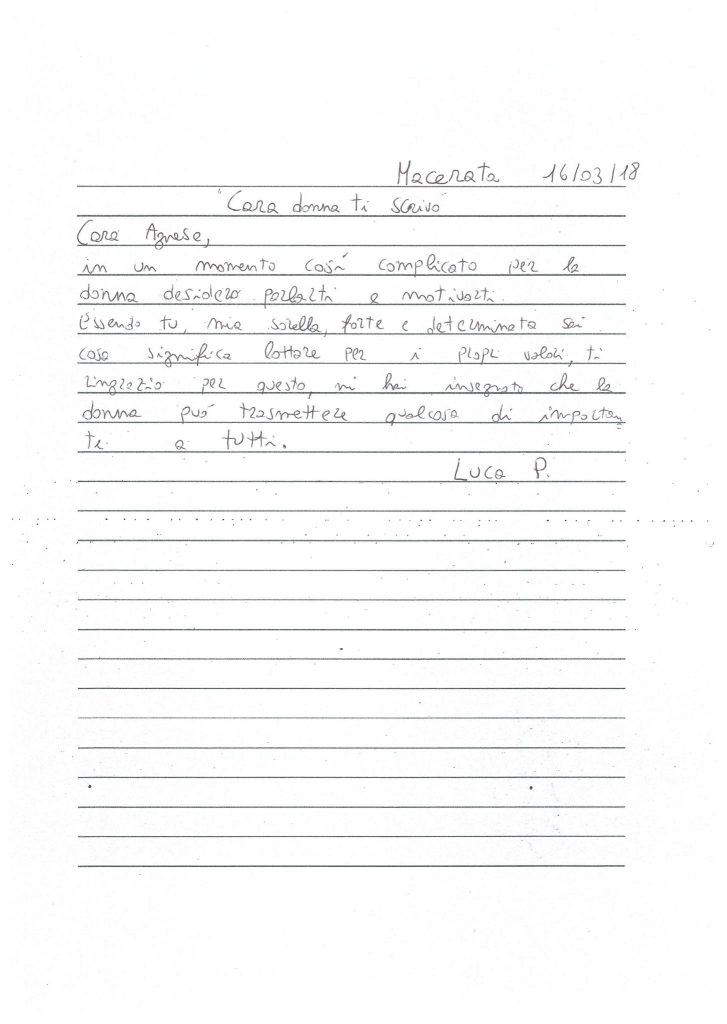 Macerata 16/03/18
"Cara donna ti scrivo"
Cara Agnese,
in un momento così complicato per la
donna desidero parlarti e motivarti.
Essendo tu, mia sorella, forte e determinata sai
cosa significa lottare per i propi valori, ti
ringrazio per questo, mi hai insegnato che la
donna può trasmettere qualcosa di importan
te a tutti.
Luca P.